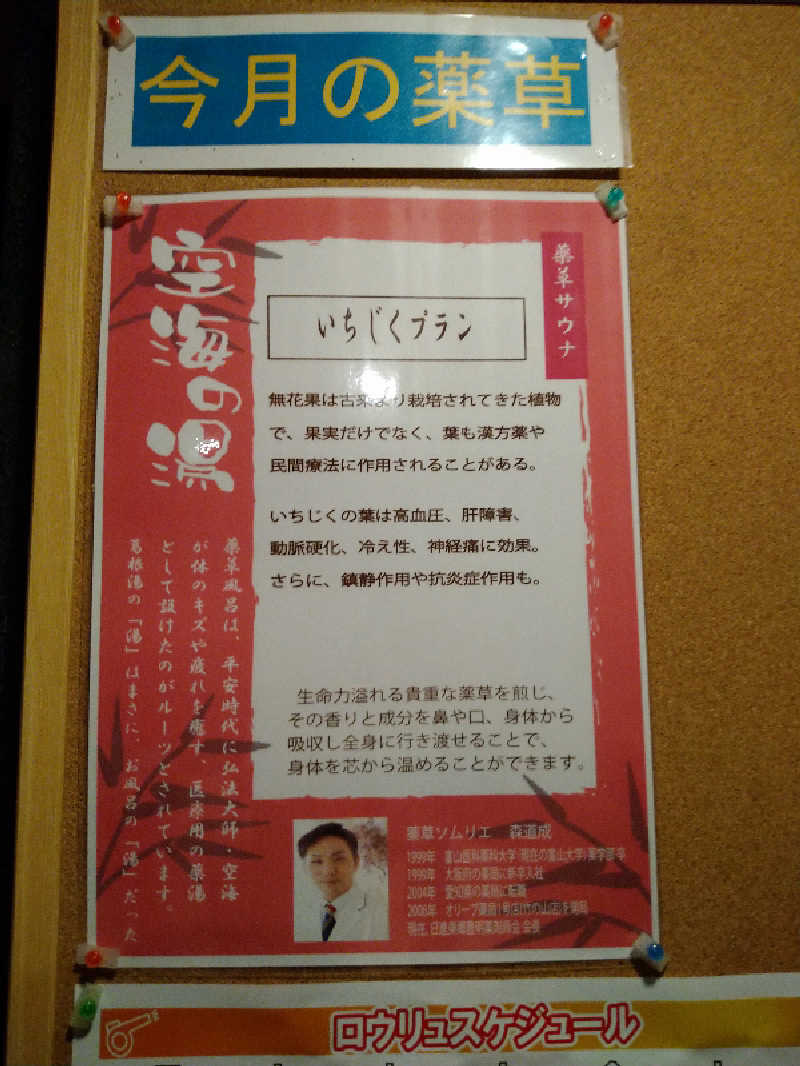 今月の薬草
薬草サウナ
いちじくプラン
無花果は古来より栽培されてきた植物
で、果実だけでなく、葉も漢方薬や
民間療法に作用されることがある。
いちじくの葉は高血圧、肝障害、
動脈硬化、冷え性、神経痛に効果。
さらに、鎮静作用や抗炎症作用も。
生命力溢れる貴重な薬草を煎じ、
その香りと成分を鼻や口、身体から
吸収し全身に行き渡せることで、
身体を芯から温めることができます。
空海の湯
薬草風呂は、平安時代に弘法大師・空海
が体のキズや疲れを癒す、医療用の薬湯
として設けたのがルーツとされています。
葛根湯の「湯」はまさに、お風呂の「湯」だった
薬草ソムリエ 森道成
1999年 富山医科薬科大学(現在の富山大学)薬学部卒
1999年 大阪府の薬局に新卒入社
2004年 愛知県の薬局に転職
2008年 オリーブ薬局1号店(竹の山店)を開局
現在、日進東郷豊明薬剤師会 会長
ロウリュスケジュール